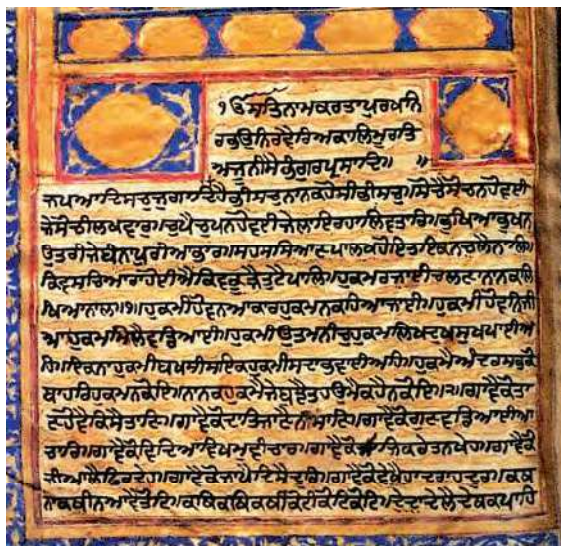 ੧ਓਸਤਿਨਾਮਕਰਤਾਪੁਰਖਨਿ
ਰਭਉਨਿਰਵੈਰਿਅਕਾਲਿਮੂਰਤਿ
ਅਜੂਨੀਸੈਭੰਗੁਰਪ੍ਰਸਾਦਿ॥ ॥
ਜਪਆਦਿਸਚੁਜੁਗਾਦਿਹੈਭੀਸਚੁਨਾਨਕਹੋਸੀਭੀਸਚੁ॥ਸੋਚੈਸੋਚਨਹੋਵਈ
ਜੇਸੋਚੀਲਖਵਾਰ॥ਚੁਪੈਚੁਪਨਹੋਵਈਜੇਲਾਇਰਹਾਲਿਵਤਾਰ॥ਭੁਖਿਆਭੁਖਨ
ਉਤਰੀਜੇਬੰਨਾਪੁਰੀਆਭਾਰ॥ਸਹਸਸਿਆਣਪਾਲਖਹੋਇਤਇਕਨਚਲੈਨਾਲਿ॥
ਕਿਵਸਚਿਆਰਾਹੋਈਐਕਿਵਕੂੜੈਤੁਟੈਪਾਲਿ॥ਹੁਕਮਰਜਾਈਚਲਣਾਨਾਨਕਲਿ
ਖਿਆਨਾਲ॥੧॥ਹੁਕਮੀਹੋਵਨਆਕਾਰਹੁਕਮਨਕਹਿਆਜਾਈ॥ਹੁਕਮੀਹੋਵਨਿਜੀ
ਆਹੁਕਮਮਿਲੈਵਡਿਆਈ॥ਹੁਕਮੀਉਤਮਨੀਚੁਹੁਕਮਲਿਖਦੁਖਸੁਖਪਾਈਅ
ਹਿ॥ਇਕਨਾਹੁਕਮੀਬਖਸੀਸਇਕਹੁਕਮੀਸਦਾਭਵਾਈਅਹਿ॥ਹੁਕਮੈਅੰਦਰਸਭਕੋ
ਬਾਹਰਿਹੁਕਮਨਕੋਇ॥ਨਾਨਕਹੁਕਮੈਜੇਬੁਝੈਤਹਉਮੈਕਹੈਨਕੋਇ॥੨॥ਗਾਵੈਕੋਤਾ
ਣਹੋਵੈਕਿਸੈਤਾਣਿ॥ਗਾਵੈਕੋਦਾਤਿਜਾਣੈਨੀਸਾਣਿ॥ਗਾਵੈਕੋਗੁਣਵਡਿਆਈਆ
ਚਾਰਿ॥ਗਾਵੈਕੋਵਿਦਿਆਵਿਖਮਵੀਚਾਰ॥ਗਾਵੈਕੋਸਾਜਿਕਰੇਤਨਖੇਹ॥ਗਾਵੈਕੋ
ਜੀਆਲੈਫਿਰਦੇਹ॥ਗਾਵੈਕੋਜਾਪੈਦਿਸੈਦੂਰਿ॥ਗਾਵੈਕੋਵੇਖੈਹਾਦਰਾਹਦੂਰ॥ਕਥ
ਨਾਕਥੀਨਆਵੈਤੋਟਿ॥ਕਥਿਕਥਿਕਥੀਕੋਟੀਕੋਟਿਕੋਟਿ॥ਦੇਦਾਦੇਲੈਦੇਥਕਪਾਹਿ